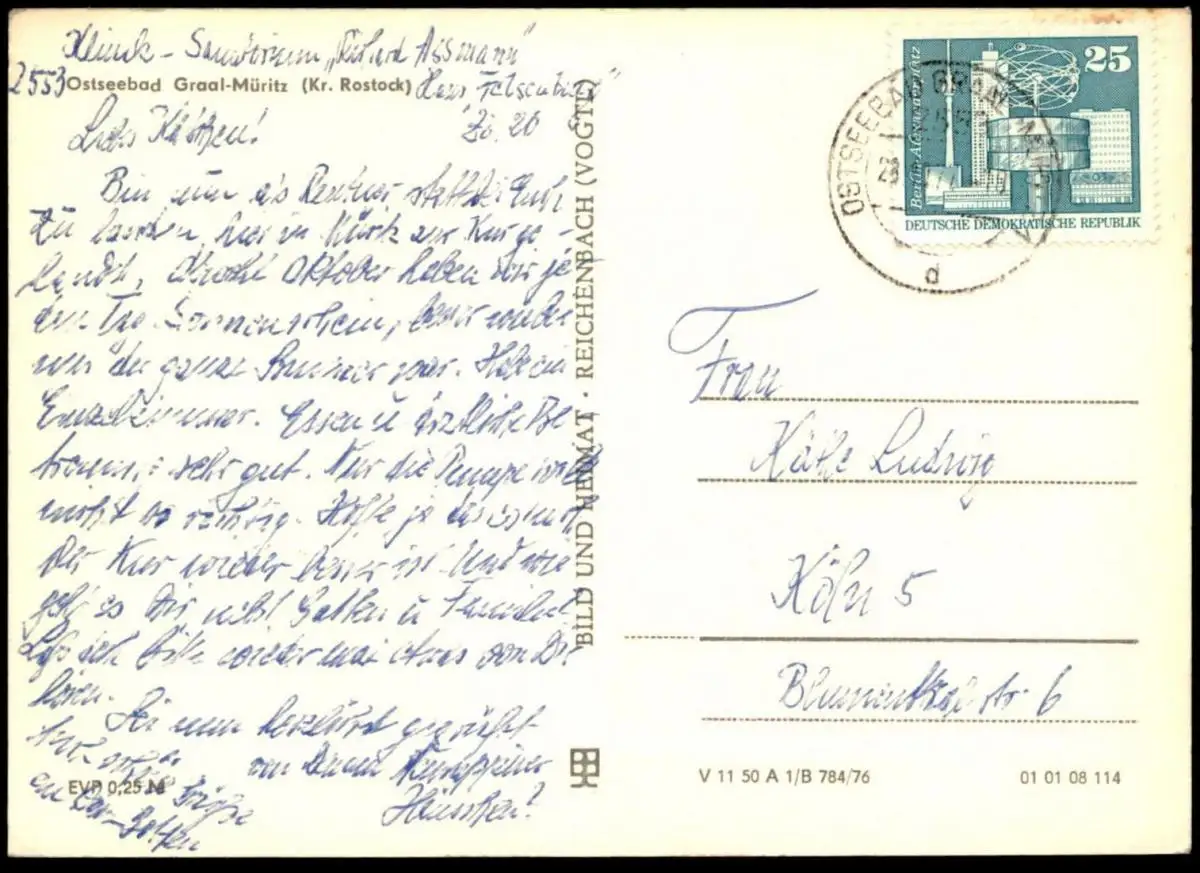 Klinik - Sanatorium "Richard Assmann"
2553 Ostseebad Graal-Müritz (Kr. Rostock) Haus
Zi. 20
Liebes Käthchen!
Bin nun als Rentner
zu hier in Müritz zur Kur ge-
landet, Oktober haben wir je-
den Tag Sonnenschein, besser wie der
der ganze Sommer war. Habe ein
Einzelzimmer. Essen u ärztliche Be-
treuung sehr gut. Nur die Pumpe will
nicht so richtig. Hoffe ja das es nach
der Kur wieder besser ist. Und wie
geht es Dir nebst Gatten u Familie?
Laß doch bitte wieder mal etwas von Dir
hören.
Sei nun herzlichst gegrüßt
von Deinem
Hänschen!
Grüße
an Gatten
EVP 0,25 M
BILD UND HEIMAT · REICHENBACH (VOGTL)
25
Berlin-Alexanderplatz
DEUTSCHE DEMOKRATISCHE REPUBLIK
OSTSEEBAD GRAAL-MÜRITZ
d
Frau
Käthe Ludwig
Köln 5
Blumenthalstr. 6
V 11 50 A 1/B 784/76
01 01 08 114